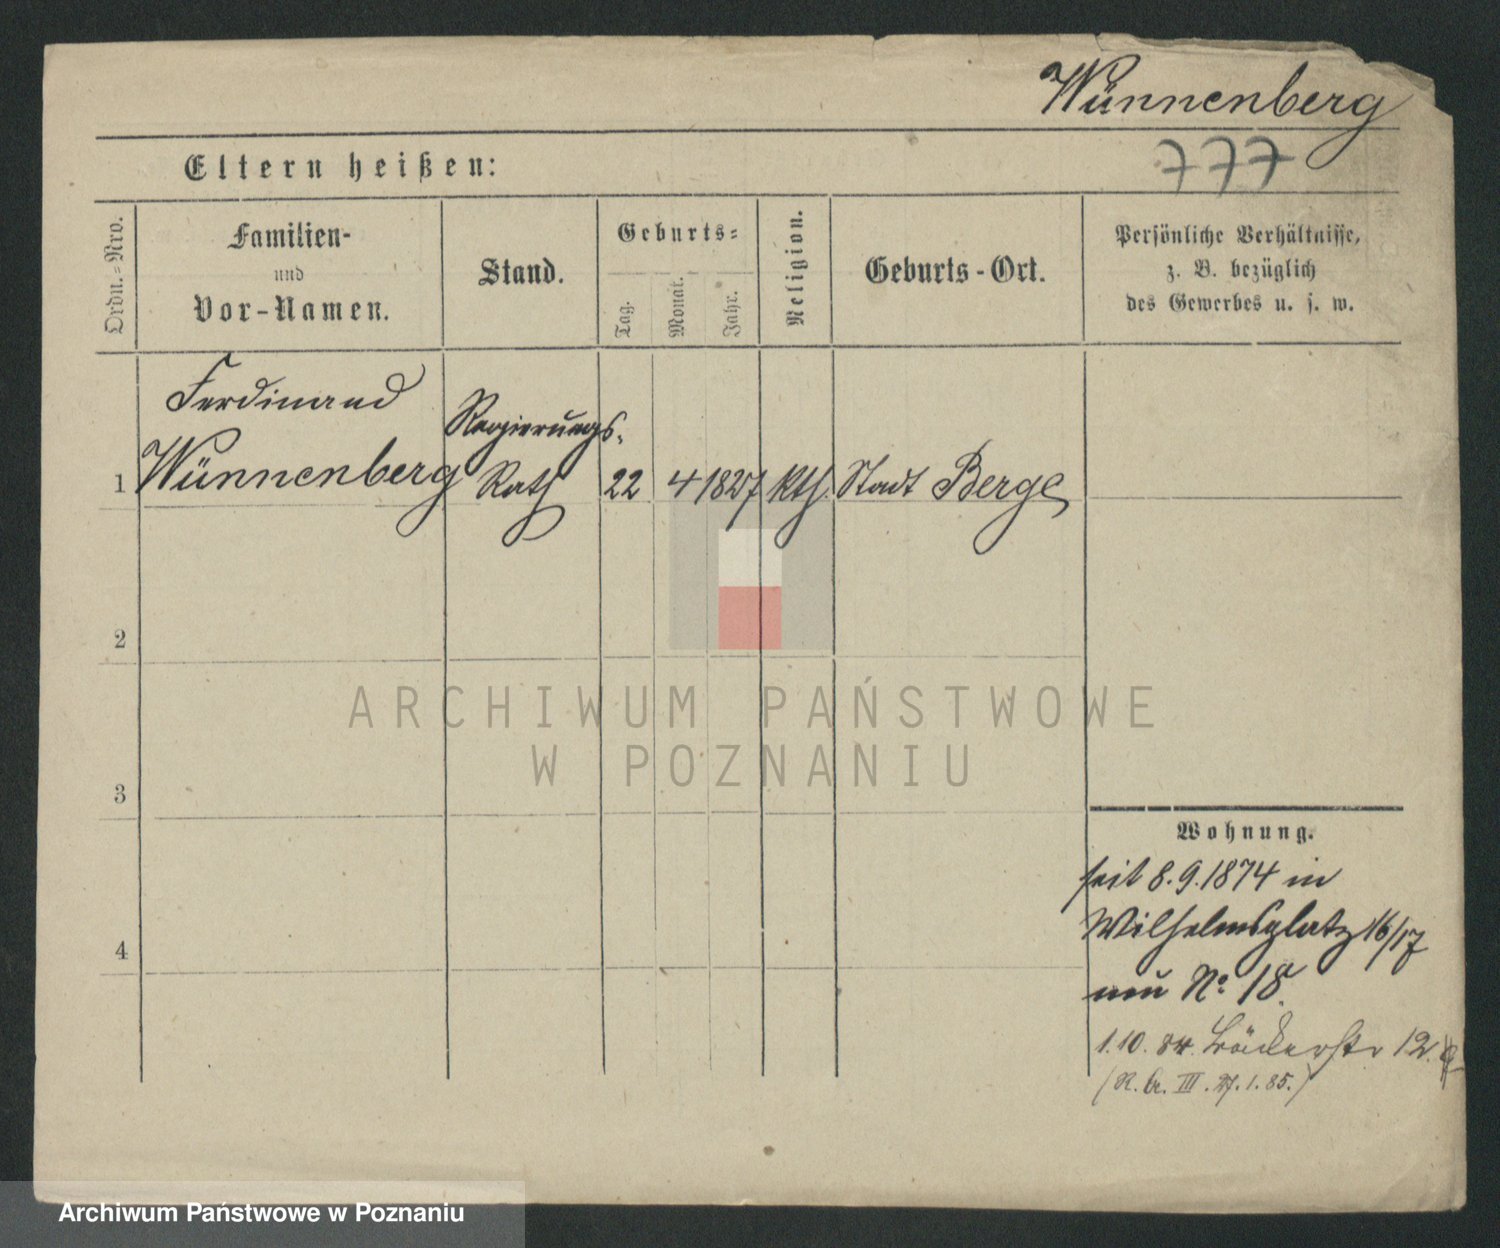 Wünnenberg
777
Eltern heißen:
Ordn.-Nro.
Familien-
und
Vor-Namen.
Stand.
Geburts-
Tag.
Monat.
Jahr.
Religion.
Geburts-Ort.
Persönliche Verhältnisse,
z. B. bezüglich
des Gewerbes u. s. w.
Ferdinand
Wünnenberg
Regierungs-
Rath
1
22
4
1827
kth.
Stadt Berge
2
3
4
Wohnung.
seit 8.9.1874 in
Wilhelmsplatz 16/17
neu No. 18
1.10. 84. Bäckerstr 12.
(R. III. 27.1.85.)
ARCHIWUM PAŃSTWOWE
W POZNANIU
Archiwum Państwowe w Poznaniu